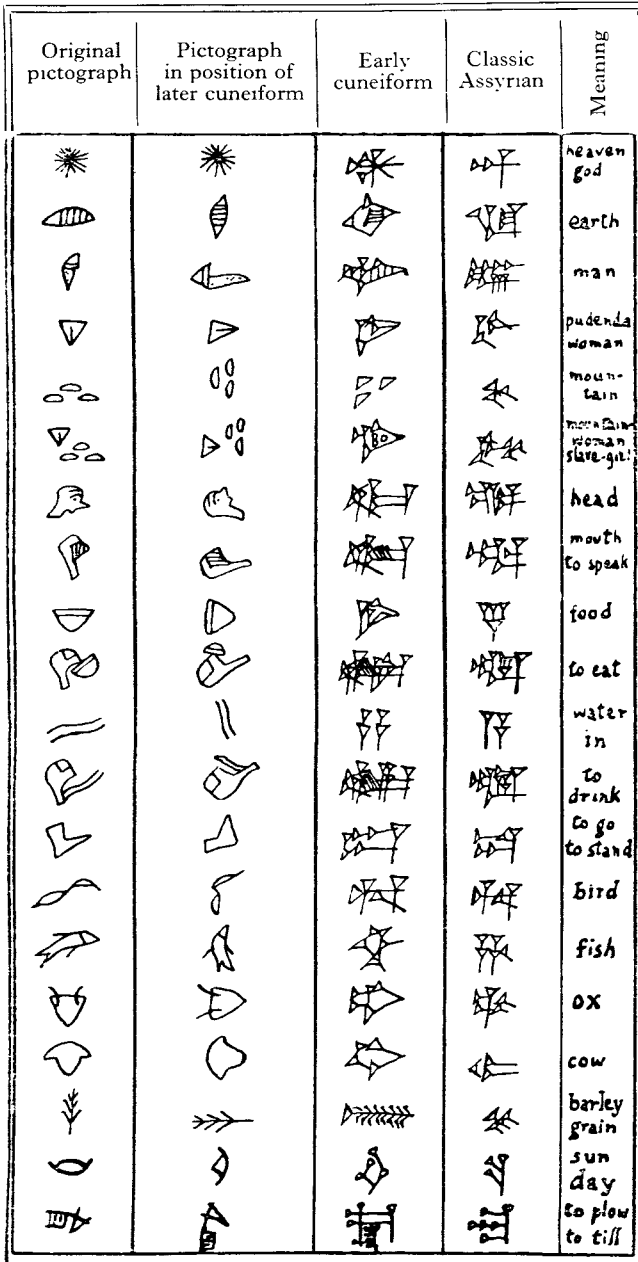 Original
pictograph
Pictograph
in position of
later cuneiform
Early
cuneiform
Classic
Assyrian
Meaning
heaven
god
earth
man
pudenda
woman
moun-
tain
mountain-
woman
slave-girl
head
mouth
to speak
food
to eat
water
in
to
drink
to go
to stand
bird
fish
ox
cow
barley
grain
sun
day
to plow
to till